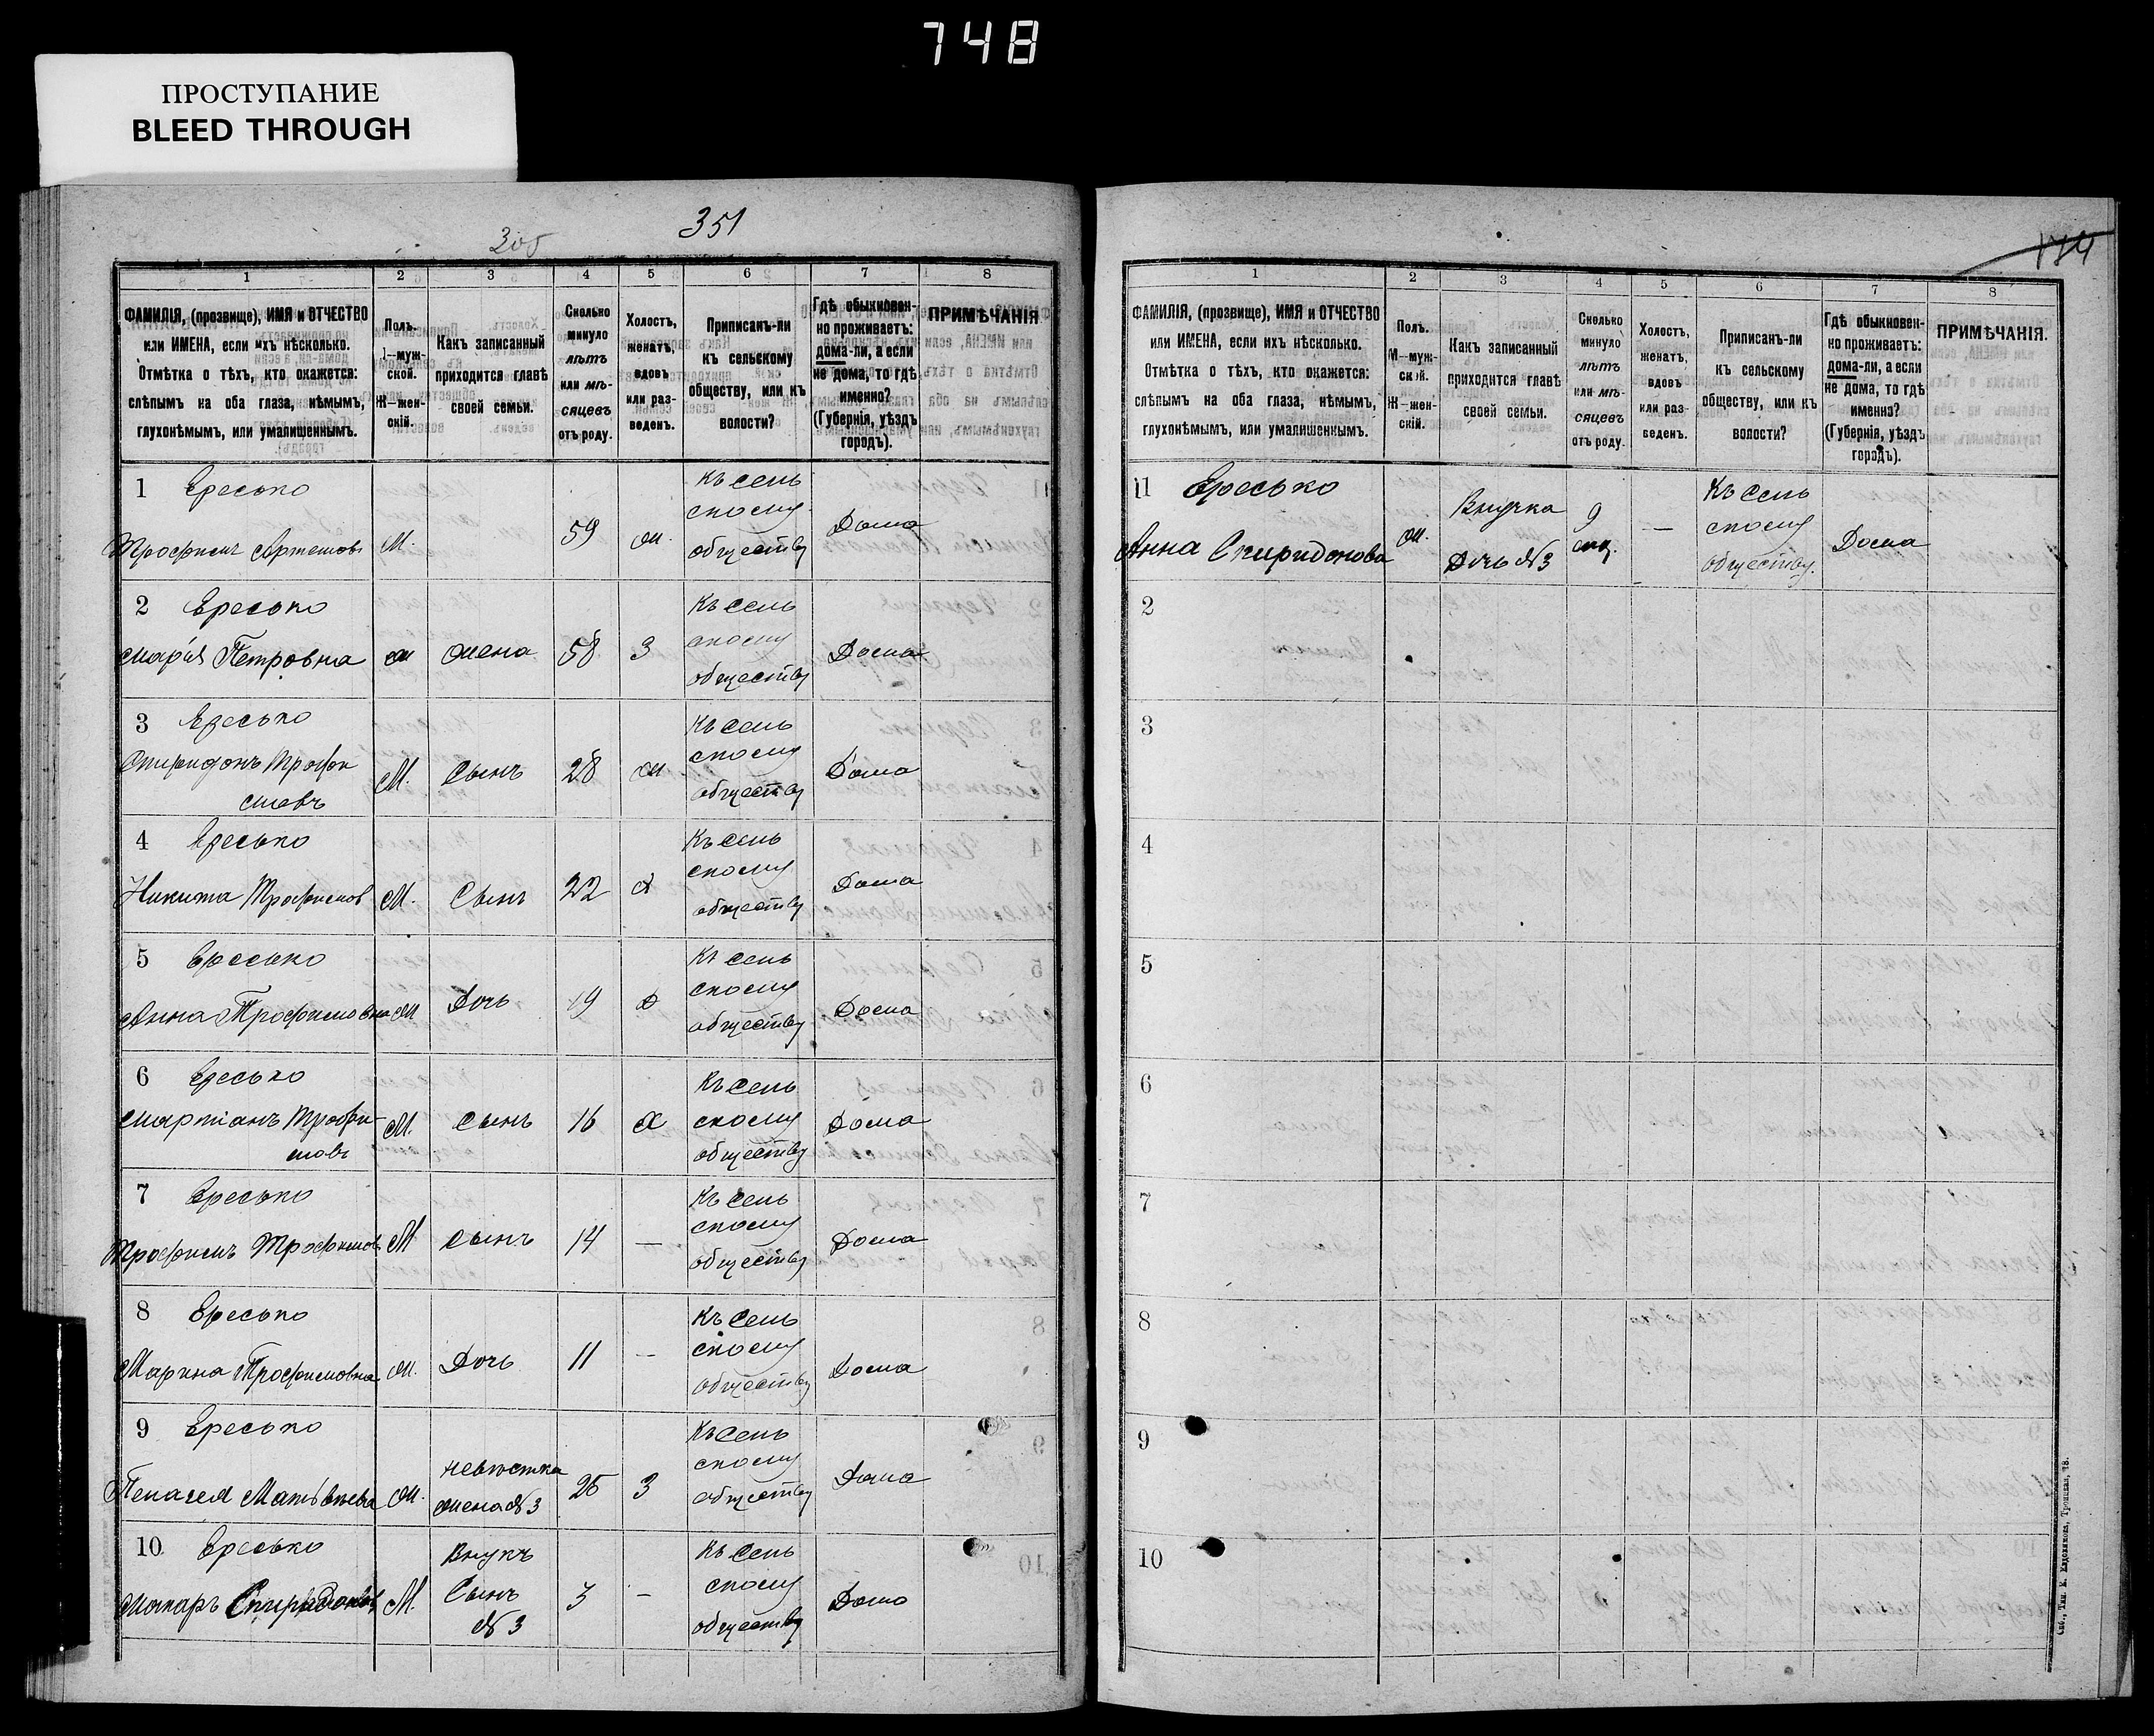 748
ПРОСТУПАНИЕ
BLEED THROUGH
351
305
1 2 3 4 5 6 7 8
ФАМИЛІЯ, (прозвище), ИМЯ и ОТЧЕСТВО
или ИМЕНА, если ихъ нѣсколько.
Отмѣтка о тѣхъ, кто окажется:
слѣпымъ на оба глаза, нѣмымъ,
глухонѣмымъ, или умалишеннымъ.
Полъ.
М—муж-
ской.
Ж—жен-
скій.
Какъ записанный
приходится главѣ
своей семьи.
Сколько
минуло
лѣтъ
или мѣ-
сяцевъ
отъ роду.
Холостъ,
женатъ,
вдовъ
или раз-
веденъ.
Приписанъ-ли
къ сельскому
обществу, или къ
волости?
Гдѣ обыкновен-
но проживаетъ:
дома-ли, а если
не дома, то гдѣ
именно?
(Губернія, уѣздъ
городъ).
ПРИМѢЧАНІЯ
1 Ересько
Трофимъ Артемовъ М. 59 ж. Къ сель
скому
обществу Дома
2 Ересько
Марія Петровна ж жена 58 З Къ сель
скому
обществу Дома
3 Ересько
Спиридонъ Трофи
мовъ М. Сынъ 28 ж Къ сель
скому
обществу Дома
4 Ересько
Никита Трофимов М. Сынъ 22 Х Къ сель
скому
обществу Дома
5 Ересько
Анна Трофимовна ж Дочь 19 Д Къ сель
скому
обществу Дома
6 Ересько
Мартіанъ Трофи-
мовъ М. Сынъ 16 Х Къ сель
скому
обществу Дома
7 Ересько
Трофимъ Трофимовъ М Сынъ 14 — Къ сель
скому
обществу Дома
8 Ересько
Марина Трофимовна ж. Дочь 11 — Къ сель
скому
обществу Дома
9 Ересько
Пелагея Матвѣева ж. невѣстка
жена №3 25 З Къ сель
скому
обществу Дома
10 Ересько
Макаръ Спиридоновъ М. Внукъ
Сынъ
№ 3 3 — Къ сель
скому
обществу Дома
174
1 2 3 4 5 6 7 8
ФАМИЛІЯ, (прозвище), ИМЯ и ОТЧЕСТВО
или ИМЕНА, если ихъ нѣсколько.
Отмѣтка о тѣхъ, кто окажется:
слѣпымъ на оба глаза, нѣмымъ,
глухонѣмымъ, или умалишеннымъ.
Полъ.
М—муж-
ской.
Ж—жен-
скій.
Какъ записанный
приходится главѣ
своей семьи.
Сколько
минуло
лѣтъ
или мѣ-
сяцевъ
отъ роду.
Холостъ,
женатъ,
вдовъ
или раз-
веденъ.
Приписанъ-ли
къ сельскому
обществу, или къ
волости?
Гдѣ обыкновен-
но проживаетъ:
дома-ли, а если
не дома, то гдѣ
именно?
(Губернія, уѣздъ
городъ).
ПРИМѢЧАНІЯ.
11 Ересько
Анна Спиридонова ж. Внучка
Дочь №3 9
мц. — Къ сель
скому
обществу. Дома
2
3
4
5
6
7
8
9
10
Спб., Тип. Е. Евдокимова, Троицкая, 18.